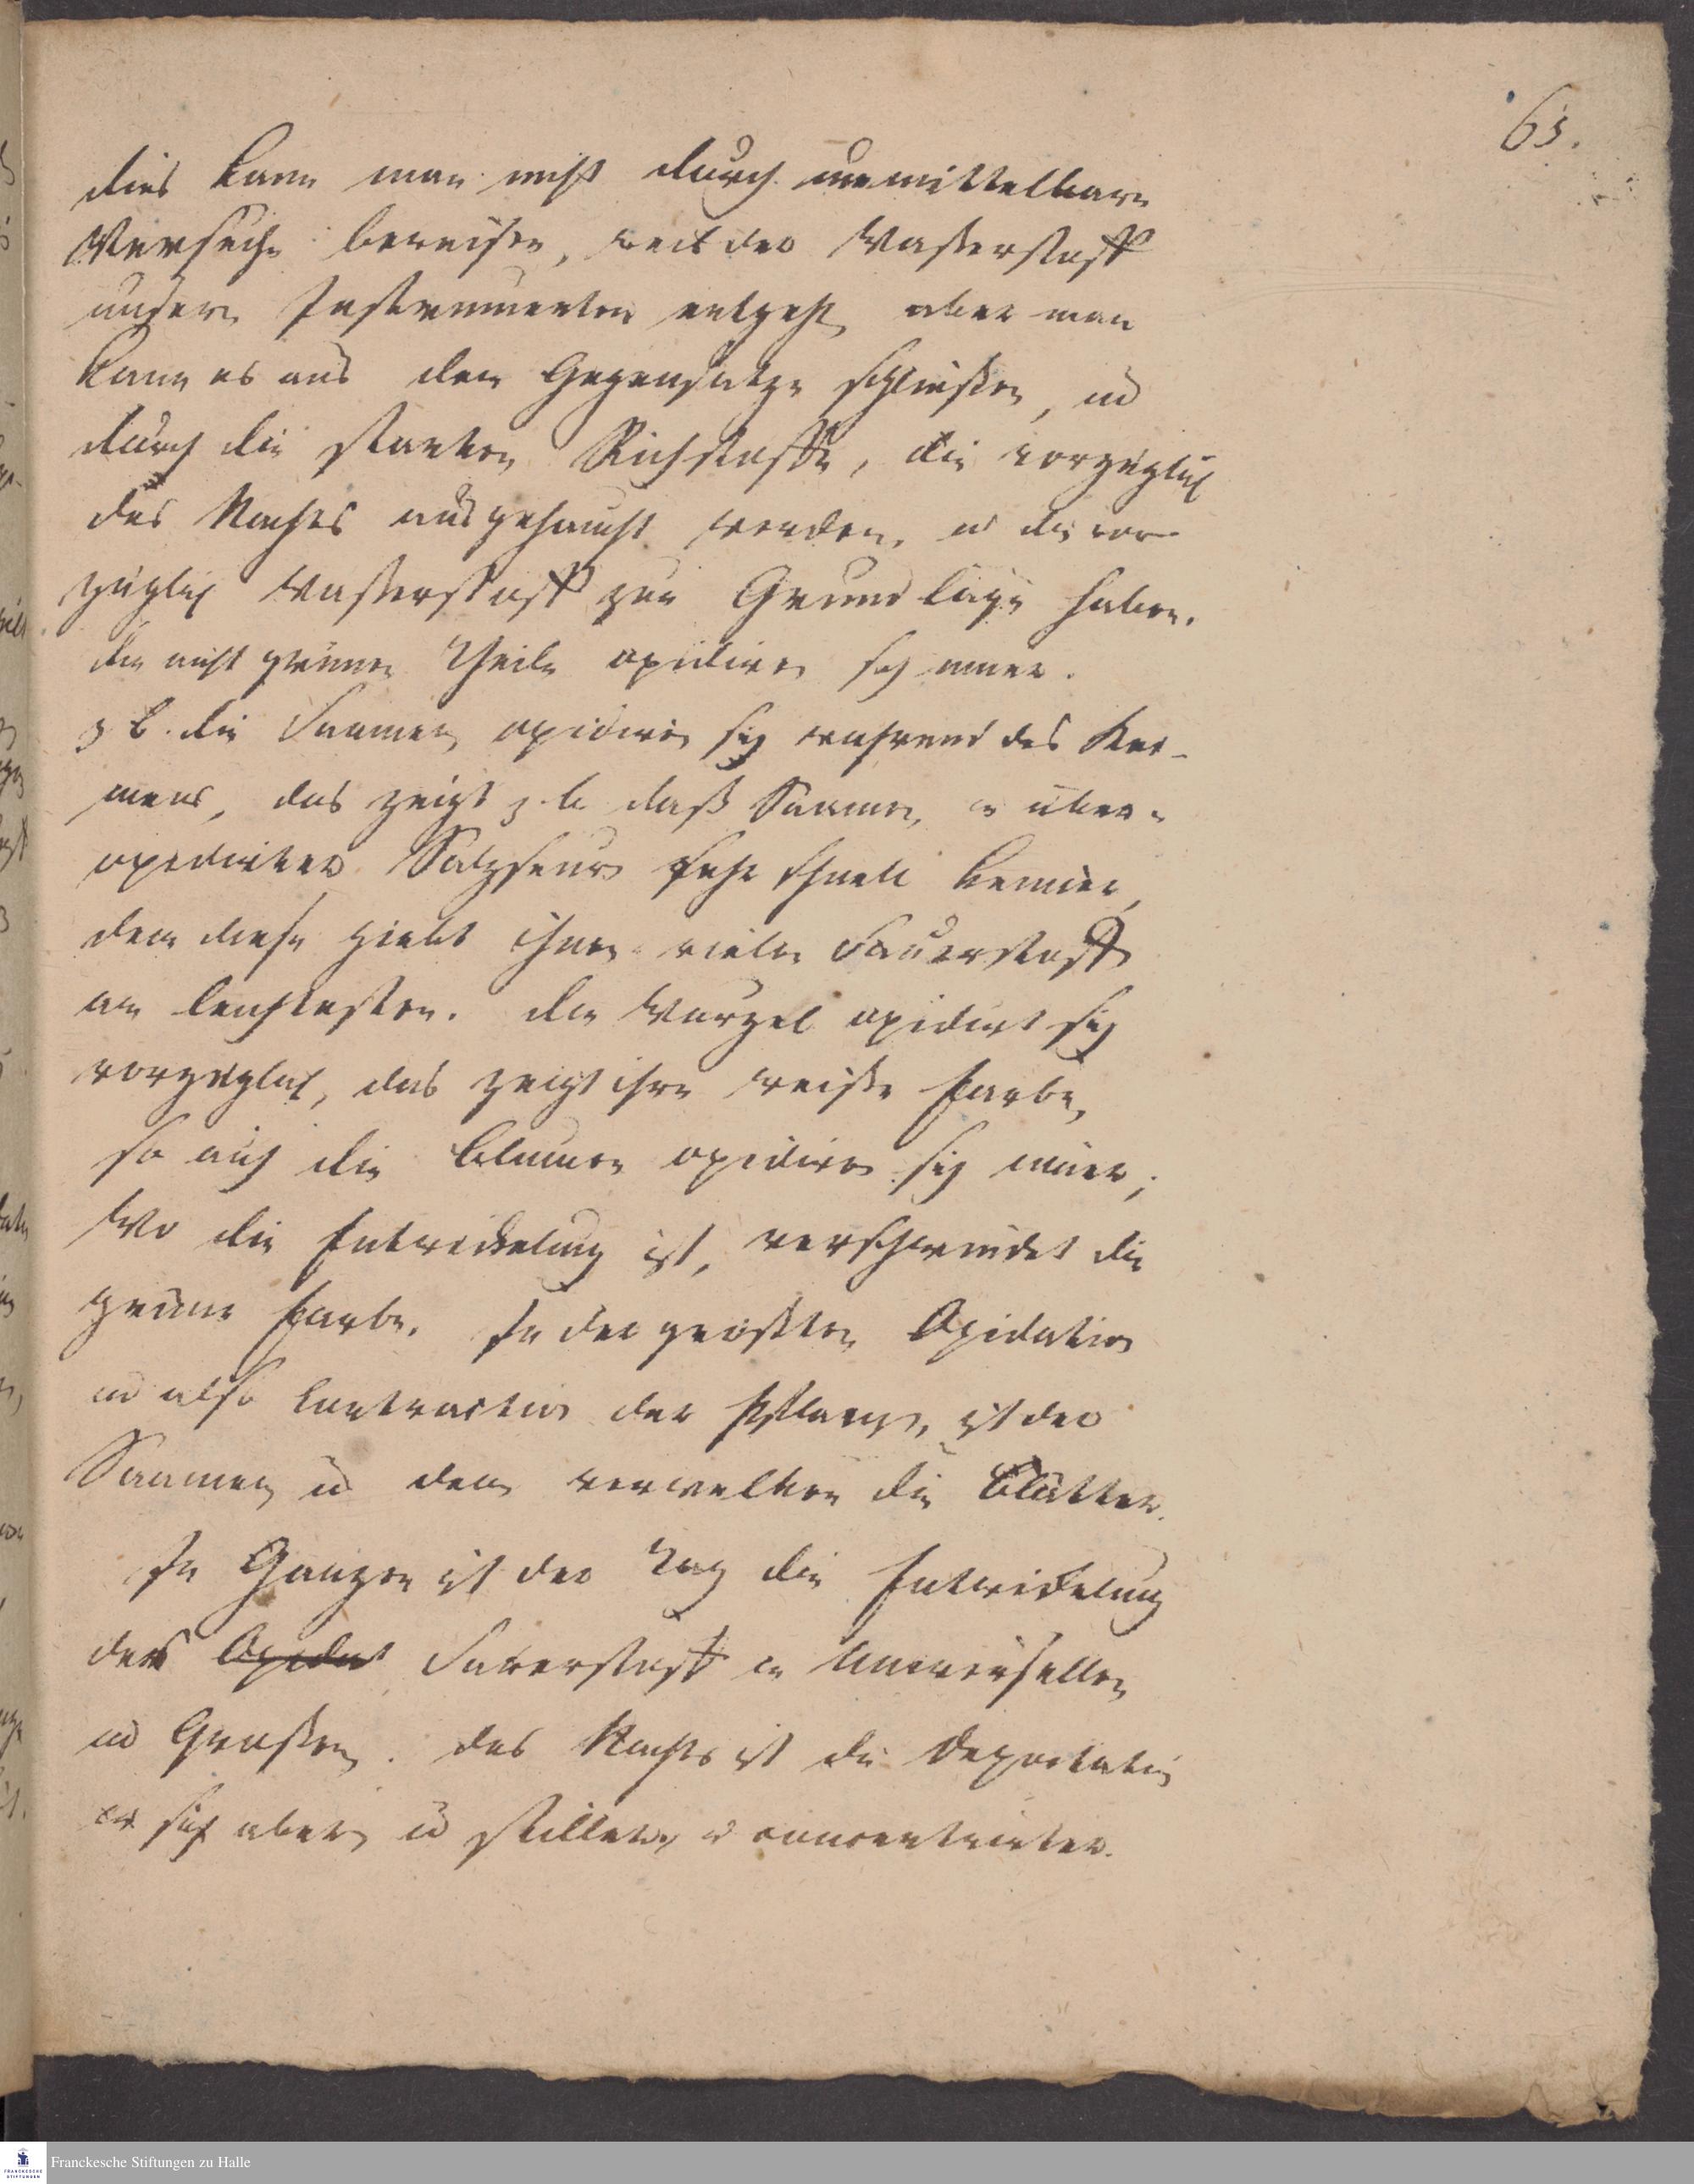 65.
dies kann man nicht durch unmittelbare
Versuche beweisen, weil der Wasserstoff
unsern Instrumenten entgeht, aber man
kann es aus dem Gegensatze schließen, ud
durch die starken Riechstoffe, die vorzüglich
des Nachts ausgehaucht werden, u die vor-
züglich Wasserstoff zur Grundlage haben.
die nicht grünen Theile oxidiren sich immer.
z b. die Saamen oxidiren sich während des Kei-
mens, das zeigt z. b. daß Saamen in über-
oxidirter Salzsäure sehr schnell keimen,
denn diese giebt ihnen vielen Sauerstoff
am leichtesten. die Wurzel oxidirt sich
vorzüglich, das zeigt ihre weiße Farbe,
so auch die Blumen oxidiren sich immer;
Wo die Entwickelung ist, verschwindet die
grüne Farbe. In der größten Oxidation
ud also Contraction der Pflanze, ist der
Saamen ud dann verwelken die Blätter.
Im Ganzen ist der Tag die Entwickelung
des Oxidat Sauerstoff in Universellen
ud Großen. des Nachts ist die
sich aber ud stiller, u concentrirter.
Franckesche Stiftungen zu Halle